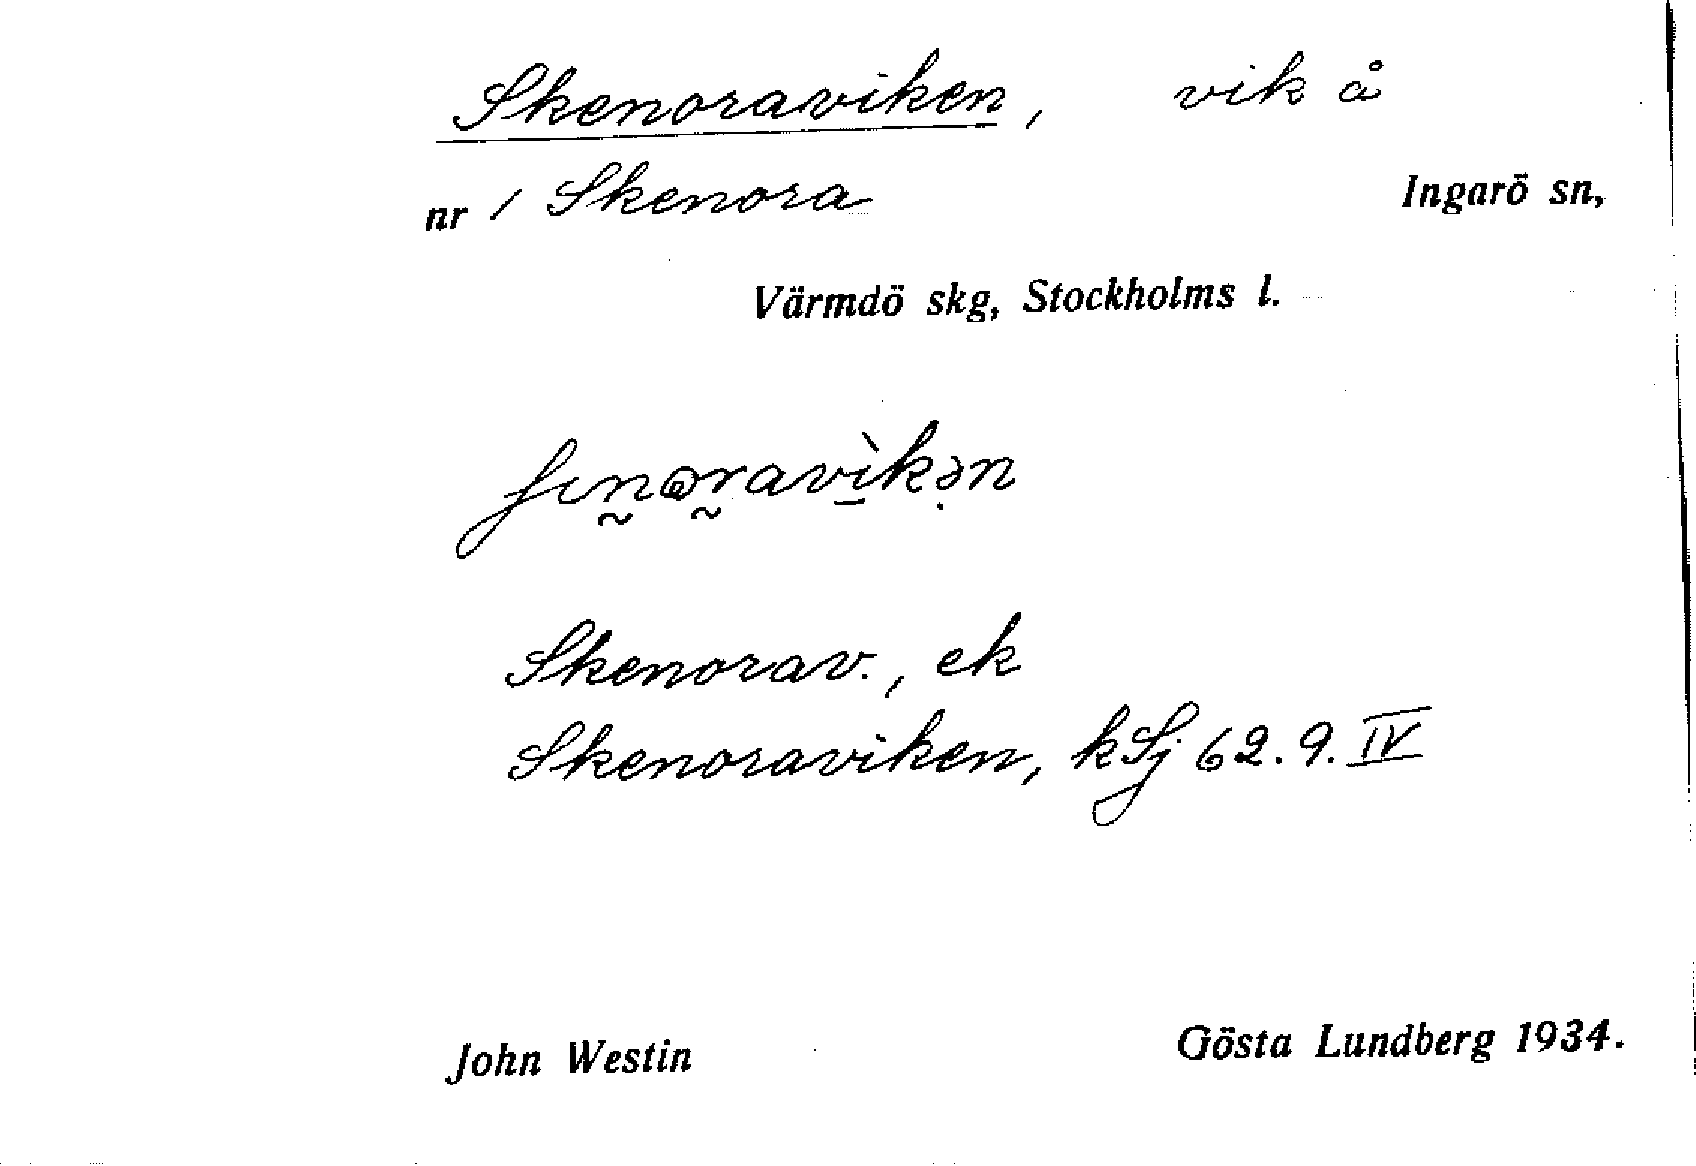 Skenoraviken, vik å
nr 1 Skenora Ingarö sn,
Värmdö skg, Stockholms l.
Skenorav., ek
Skenoraviken, kSj 62.9.IV
John Westin Gösta Lundberg 1934.